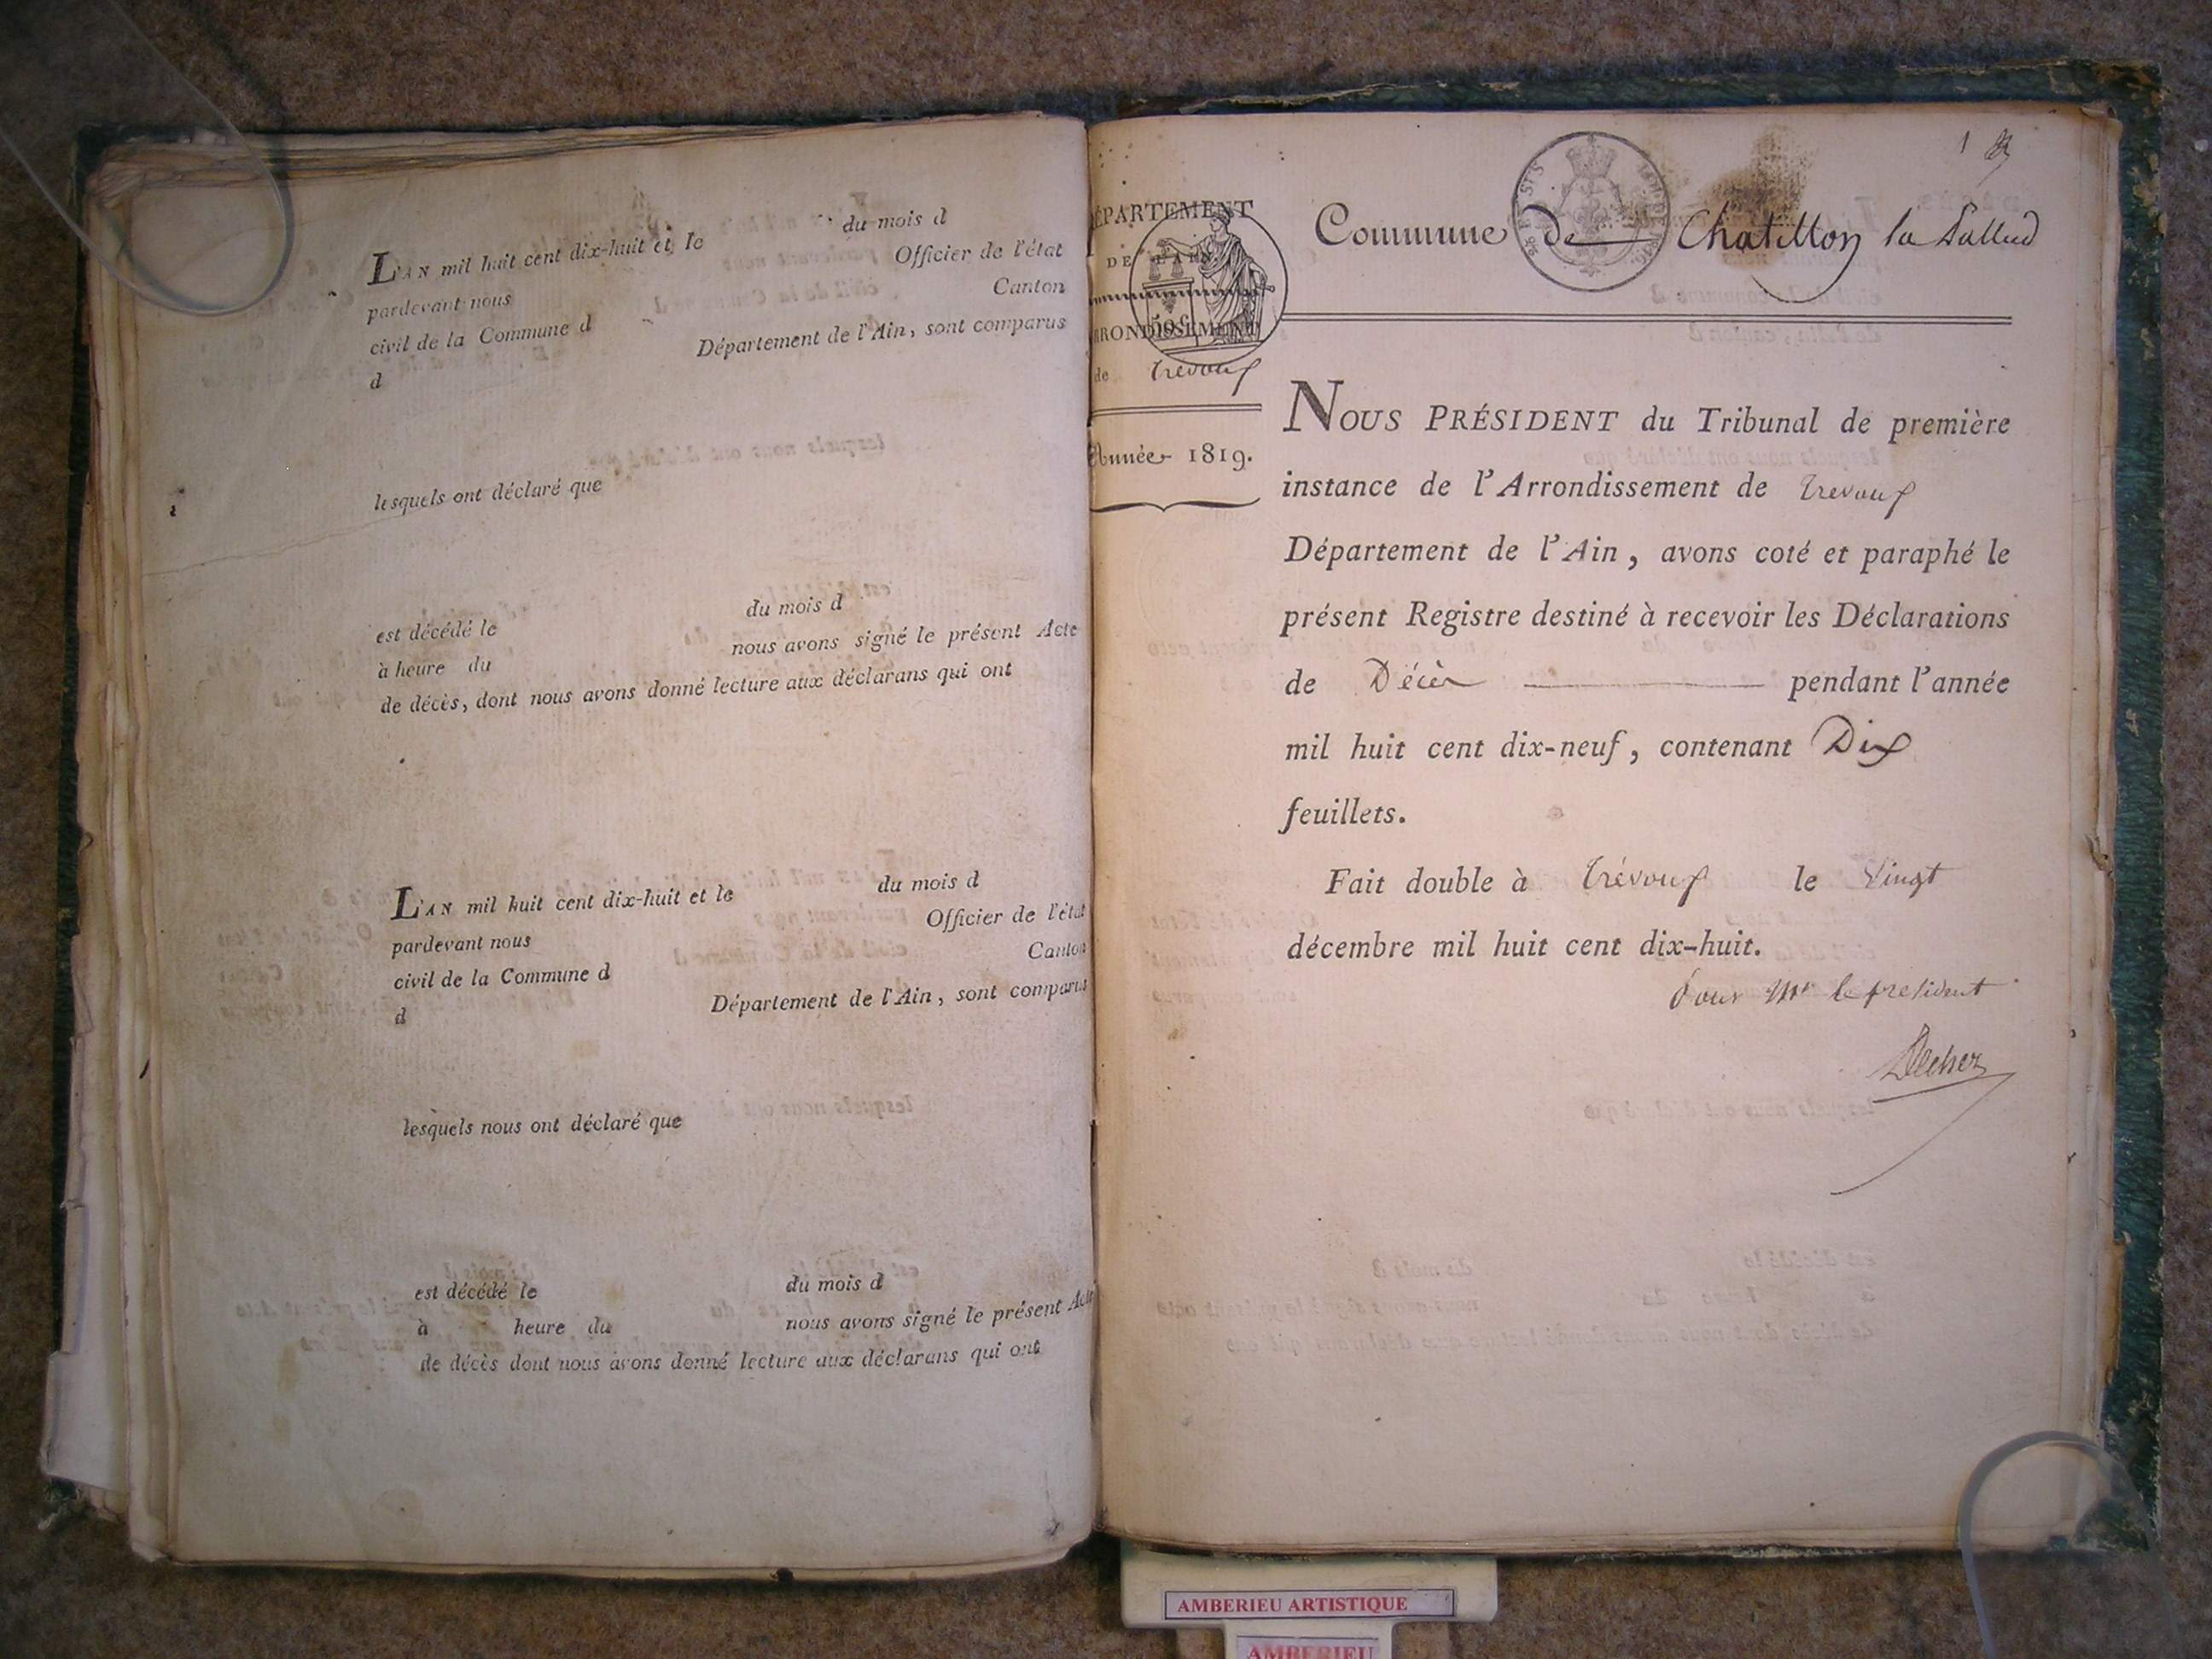 du mois d
L'AN mil huit cent dix-huit et le
pardevant nous Officier de l'état
civil de la Commune d Canton
d Département de l'Ain, sont comparus
lesquels ont déclaré que
est décédé le du mois d
à heure du nous avons signé le présent Acte
de décès, dont nous avons donné lecture aux déclarans qui ont
L'AN mil huit cent dix-huit et le du mois d
pardevant nous Officier de l'état
civil de la Commune d Canton
d Département de l'Ain, sont comparus
lesquels nous ont déclaré que
est décédé le du mois d
à heure du nous avons signé le présent Acte
de décès dont nous avons donné lecture aux déclarans qui ont
1
DÉPARTEMENT
DE L'AIN
ARRONDISSEMENT
de Trevoux
Année 1819.
Commune de Chatillon la Pallud
NOUS PRÉSIDENT du Tribunal de première
instance de l'Arrondissement de Trevoux
Département de l'Ain, avons coté et paraphé le
présent Registre destiné à recevoir les Déclarations
de Décès pendant l'année
mil huit cent dix-neuf, contenant Dix
feuillets.
Fait double à Trévoux le Vingt
décembre mil huit cent dix-huit.
Pour Mr le president
AMBERIEU ARTISTIQUE
AMBERIEU